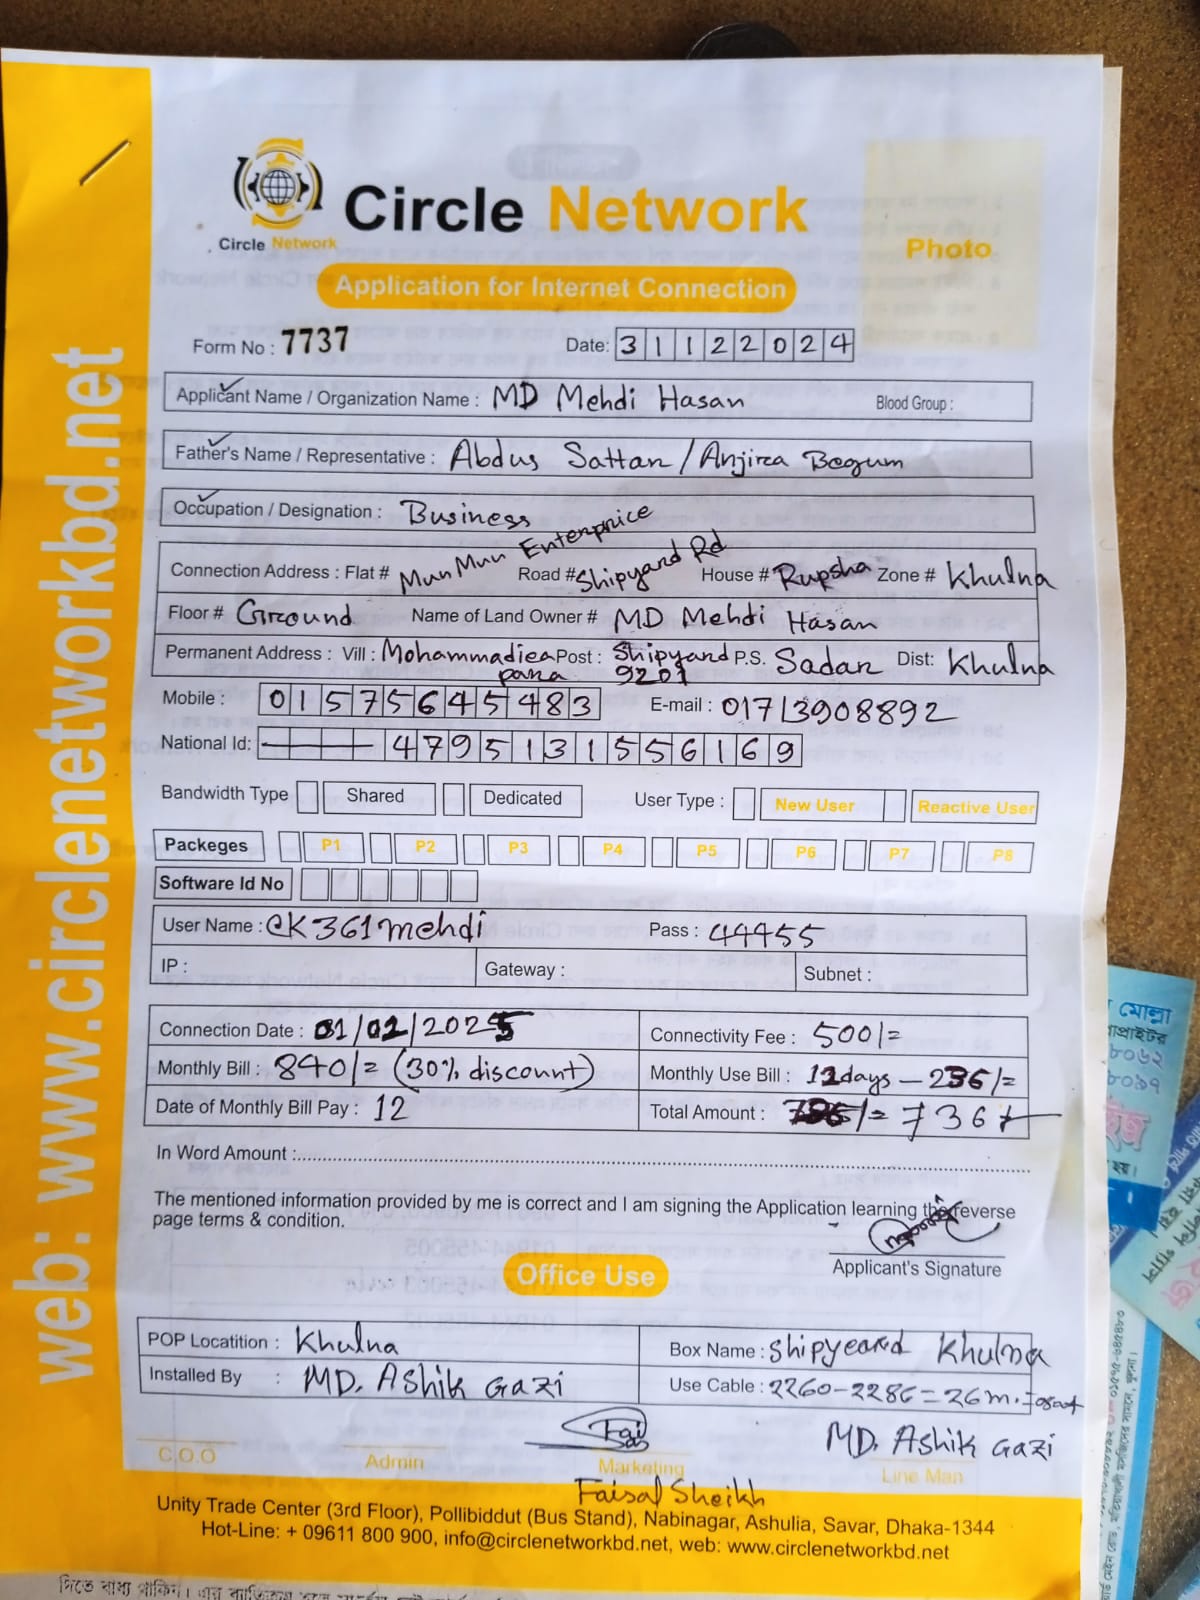 web: www.circlenetworkbd.net
Circle Network
Circle Network
Photo
Application for Internet Connection
Form No : 7737 Date: 31122024
Applicant Name / Organization Name : MD Mehdi Hasan Blood Group :
Father's Name / Representative : Abdus Sattar / Anjira Begum
Occupation / Designation : Business
Connection Address : Flat # Mun Mun Enterprice Road # Shipyard Rd House # Rupsha Zone # Khulna
Floor # Ground Name of Land Owner # MD Mehdi Hasan
Permanent Address : Vill : Mohammadiea para Post : Shipyard 9201 P.S. Sadar Dist: Khulna
Mobile : 01575645483 E-mail : 01713908892
National Id: 4795131556169
Bandwidth Type Shared Dedicated User Type : New User Reactive User
Packeges P1 P2 P3 P4 P5 P6 P7 P8
Software Id No
User Name : CK361mehdi Pass : 44455
IP : Gateway : Subnet :
Connection Date : 01/01/2025 Connectivity Fee : 500/=
Monthly Bill : 840/= (30% discount) Monthly Use Bill : 12days – 236/=
Date of Monthly Bill Pay : 12 Total Amount : 736/-
In Word Amount :
The mentioned information provided by me is correct and I am signing the Application learning the reverse
page terms & condition.
Applicant's Signature
Office Use
POP Locatition : Khulna Box Name : Shipyeard Khulna
Installed By : MD. Ashik Gazi Use Cable : 2260-2286=26m.
MD. Ashik Gazi
C.O.O Admin Marketing Line Man
Faisal Sheikh
Unity Trade Center (3rd Floor), Pollibiddut (Bus Stand), Nabinagar, Ashulia, Savar, Dhaka-1344
Hot-Line: + 09611 800 900, info@circlenetworkbd.net, web: www.circlenetworkbd.net
মোল্লা